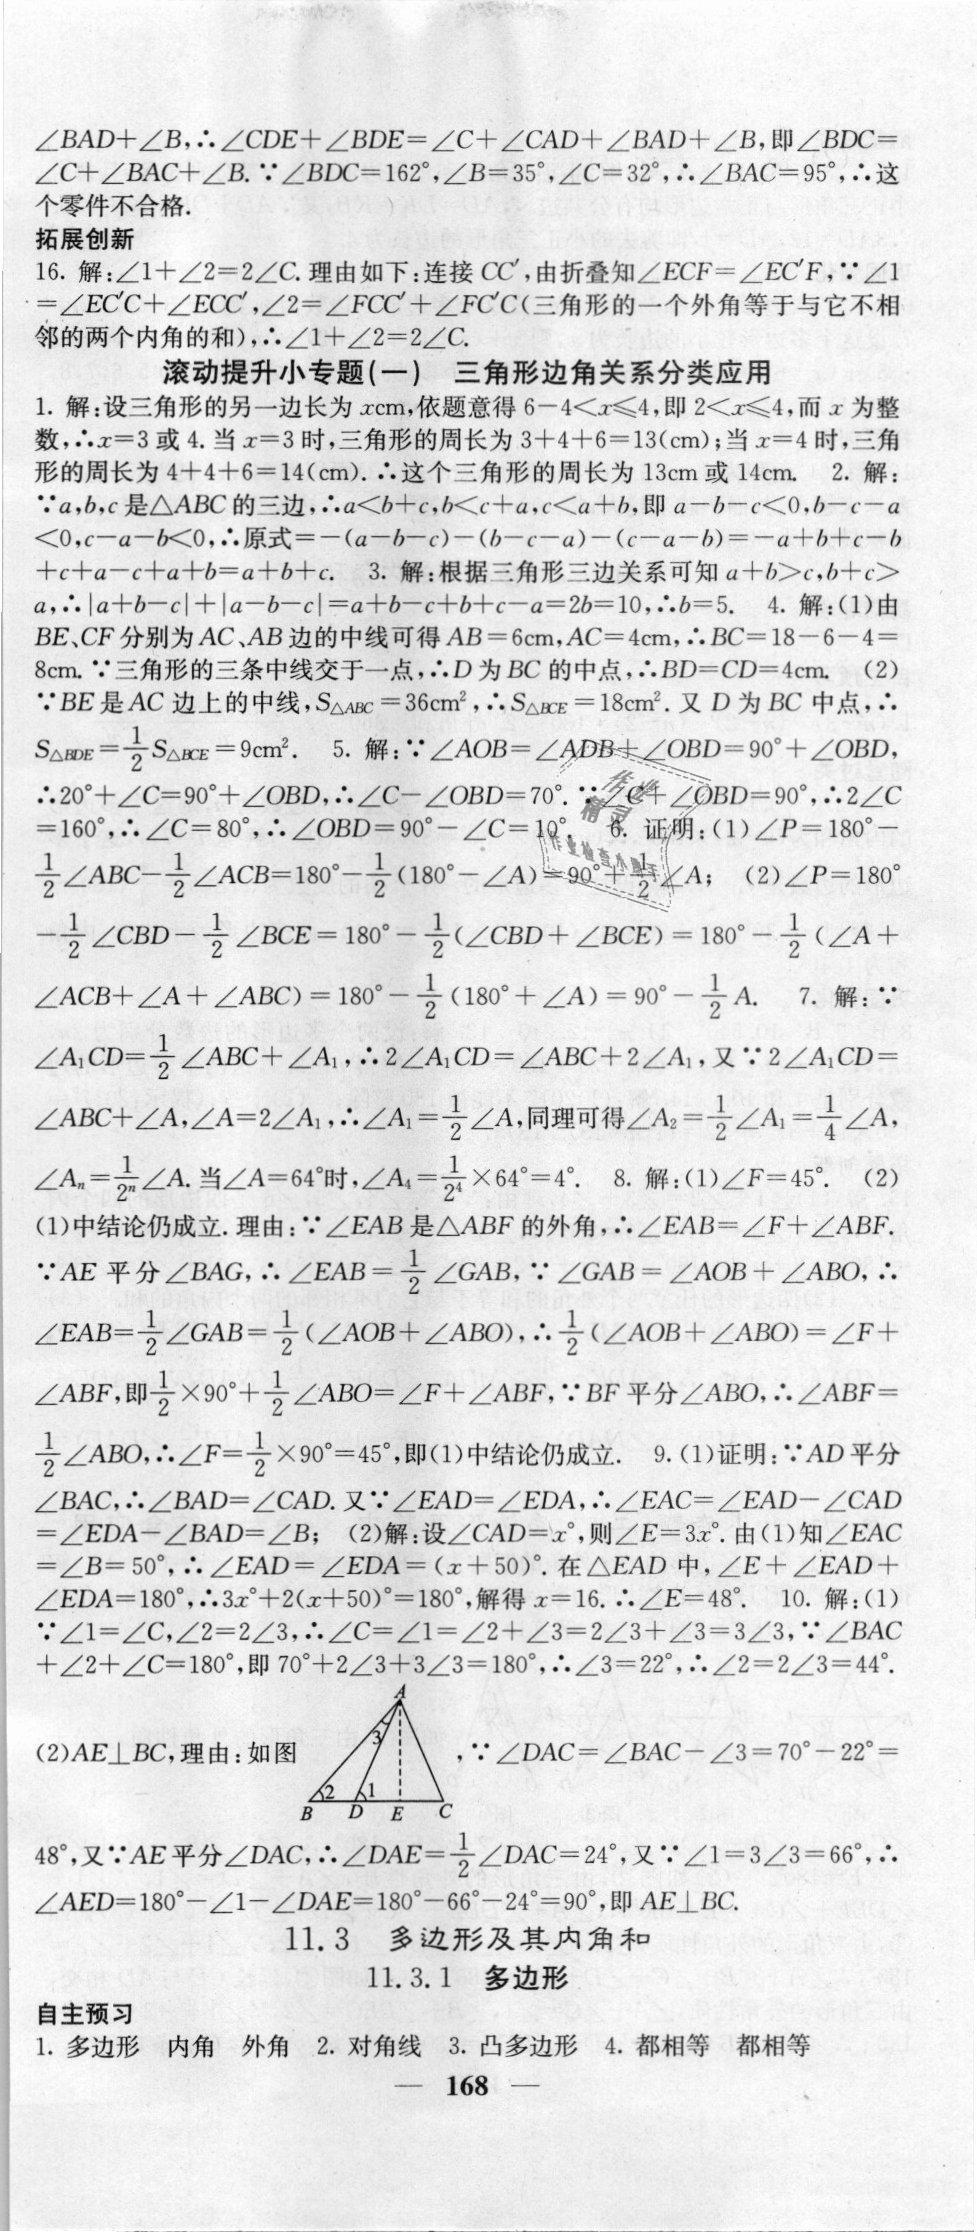 ∠BAD+∠B,∴∠CDE+∠BDE=∠C+∠CAD+∠BAD+∠B,即∠BDC=
∠C+∠BAC+∠B.∵∠BDC=162°,∠B=35°,∠C=32°,∴∠BAC=95°,∴这
个零件不合格.
拓展创新
16. 解:∠1+∠2=2∠C.理由如下:连接CC′,由折叠知∠ECF=∠EC′F,∵∠1
=∠EC′C+∠ECC′,∠2=∠FCC′+∠FC′C(三角形的一个外角等于与它不相
邻的两个内角的和),∴∠1+∠2=2∠C.
滚动提升小专题(一) 三角形边角关系分类应用
1. 解:设三角形的另一边长为xcm,依题意得6-4<x≤4,即2<x≤4,而x为整
数,∴x=3或4.当x=3时,三角形的周长为3+4+6=13(cm);当x=4时,三角
形的周长为4+4+6=14(cm).∴这个三角形的周长为13cm或14cm. 2. 解:
∵a,b,c是△ABC的三边,∴a<b+c,b<c+a,c<a+b,即a-b-c<0,b-c-a
<0,c-a-b<0,∴原式=-(a-b-c)-(b-c-a)-(c-a-b)=-a+b+c-b
+c+a-c+a+b=a+b+c. 3. 解:根据三角形三边关系可知a+b>c,b+c>
a,∴|a+b-c|+|a-b-c|=a+b-c+b+c-a=2b=10,∴b=5. 4. 解:(1)由
BE、CF分别为AC、AB边的中线可得AB=6cm,AC=4cm,∴BC=18-6-4=
8cm.∵三角形的三条中线交于一点,∴D为BC的中点,∴BD=CD=4cm. (2)
∵BE是AC边上的中线,S△ABC=36cm²,∴S△BCE=18cm².又D为BC中点,∴
S△BDE=1/2S△BCE=9cm². 5. 解:∵∠AOB=∠ADB+∠OBD=90°+∠OBD,
∴20°+∠C=90°+∠OBD,∴∠C-∠OBD=70°.∵∠C+∠OBD=90°,∴2∠C
=160°,∴∠C=80°,∴∠OBD=90°-∠C=10°. 6. 证明:(1)∠P=180°-
1/2∠ABC-1/2∠ACB=180°-1/2(180°-∠A)=90°+1/2∠A; (2)∠P=180°
-1/2∠CBD-1/2∠BCE=180°-1/2(∠CBD+∠BCE)=180°-1/2(∠A+
∠ACB+∠A+∠ABC)=180°-1/2(180°+∠A)=90°-1/2A. 7. 解:∵
∠A₁CD=1/2∠ABC+∠A₁,∴2∠A₁CD=∠ABC+2∠A₁,又∵2∠A₁CD=
∠ABC+∠A,∠A=2∠A₁,∴∠A₁=1/2∠A,同理可得∠A₂=1/2∠A₁=1/4∠A,
∠Aₙ=1/2ⁿ∠A.当∠A=64°时,∠A₄=1/2⁴×64°=4°. 8. 解:(1)∠F=45°. (2)
(1)中结论仍成立.理由:∵∠EAB是△ABF的外角,∴∠EAB=∠F+∠ABF.
∵AE平分∠BAG,∴∠EAB=1/2∠GAB,∵∠GAB=∠AOB+∠ABO,∴
∠EAB=1/2∠GAB=1/2(∠AOB+∠ABO),∴1/2(∠AOB+∠ABO)=∠F+
∠ABF,即1/2×90°+1/2∠ABO=∠F+∠ABF,∵BF平分∠ABO,∴∠ABF=
1/2∠ABO,∴∠F=1/2×90°=45°,即(1)中结论仍成立. 9.(1)证明:∵AD平分
∠BAC,∴∠BAD=∠CAD.又∵∠EAD=∠EDA,∴∠EAC=∠EAD-∠CAD
=∠EDA-∠BAD=∠B; (2)解:设∠CAD=x°,则∠E=3x°.由(1)知∠EAC
=∠B=50°,∴∠EAD=∠EDA=(x+50)°.在△EAD中,∠E+∠EAD+
∠EDA=180°,∴3x°+2(x+50)°=180°,解得x=16.∴∠E=48°. 10. 解:(1)
∵∠1=∠C,∠2=2∠3,∴∠C=∠1=∠2+∠3=2∠3+∠3=3∠3,∵∠BAC
+∠2+∠C=180°,即70°+2∠3+3∠3=180°,∴∠3=22°,∴∠2=2∠3=44°.
A
3
(2)AE⊥BC,理由:如图 ,∵∠DAC=∠BAC-∠3=70°-22°=
2 1
B D E C
48°,又∵AE平分∠DAC,∴∠DAE=1/2∠DAC=24°,又∵∠1=3∠3=66°,∴
∠AED=180°-∠1-∠DAE=180°-66°-24°=90°,即AE⊥BC.
11.3 多边形及其内角和
11.3.1 多边形
自主预习
1. 多边形 内角 外角 2. 对角线 3. 凸多边形 4. 都相等 都相等
— 168 —
作业
精灵
作业检查小助手